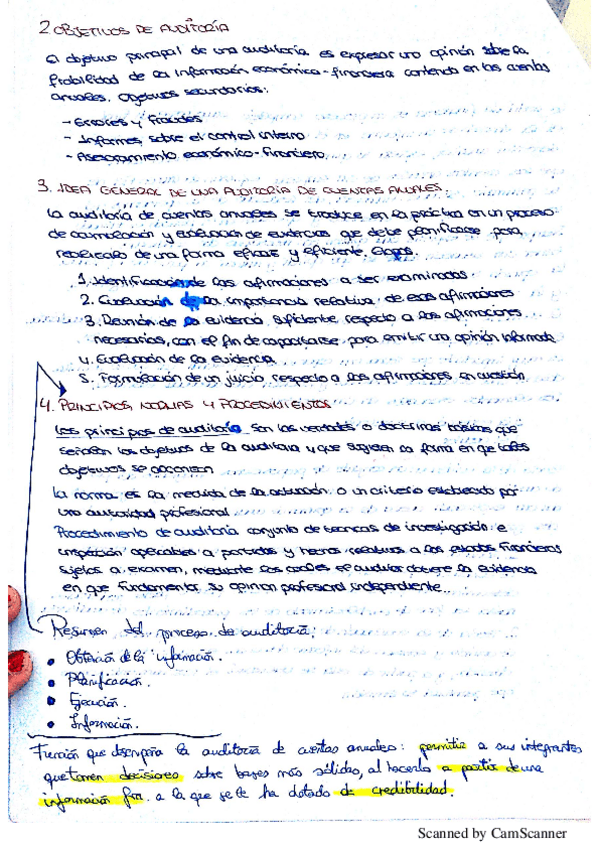 2 OBJETIVOS DE AUDITORÍA
El objetivo principal de una auditoría es expresar una opinión sobre la
fiabilidad de la información económico-financiera contenida en las cuentas
anuales. Objetivos secundarios:
- Errores y fraudes
- Informes sobre el control interno
- Asesoramiento económico-financiero
3. IDEA GENERAL DE UNA AUDITORÍA DE CUENTAS ANUALES.
La auditoría de cuentas anuales se traduce en la práctica en un proceso
de acumulación y evaluación de evidencias que debe planificarse para
realizarlo de una forma eficaz y eficiente.
1. Identificación de las afirmaciones a ser examinadas.
2. Evaluación de la importancia relativa de esas afirmaciones
3. Reunión de la evidencia suficiente respecto a las afirmaciones
necesarias, con el fin de capacitarse para emitir una opinión informada
4. Evaluación de la evidencia
5. Formulación de un juicio respecto a las afirmaciones en cuestión
4. PRINCIPIOS, NORMAS Y PROCEDIMIENTOS
Los principios de auditoría son las verdades o doctrinas básicas que
señalan los objetivos de la auditoría y que sugieren la forma en que tales
objetivos se alcanzan
La norma es la medida de la actuación o un criterio establecido por
una autoridad profesional
Procedimiento de auditoría conjunto de técnicas de investigación e
inspección aplicables a partidas y hechos relativos a los estados financieros
sujetos a examen, mediante los cuales el auditor obtiene la evidencia
en que fundamentar su opinión profesional independiente.
Resumen del proceso de auditoría:
• Obtención de la información.
• Planificación.
• Ejecución.
• Información.
Función que desempeña la auditoría de cuentas anuales: permitir a sus integrantes
que tomen decisiones sobre bases más sólidas, al hacerlo a partir de una
información fin. a la que se le ha dotado de credibilidad.
Scanned by CamScanner